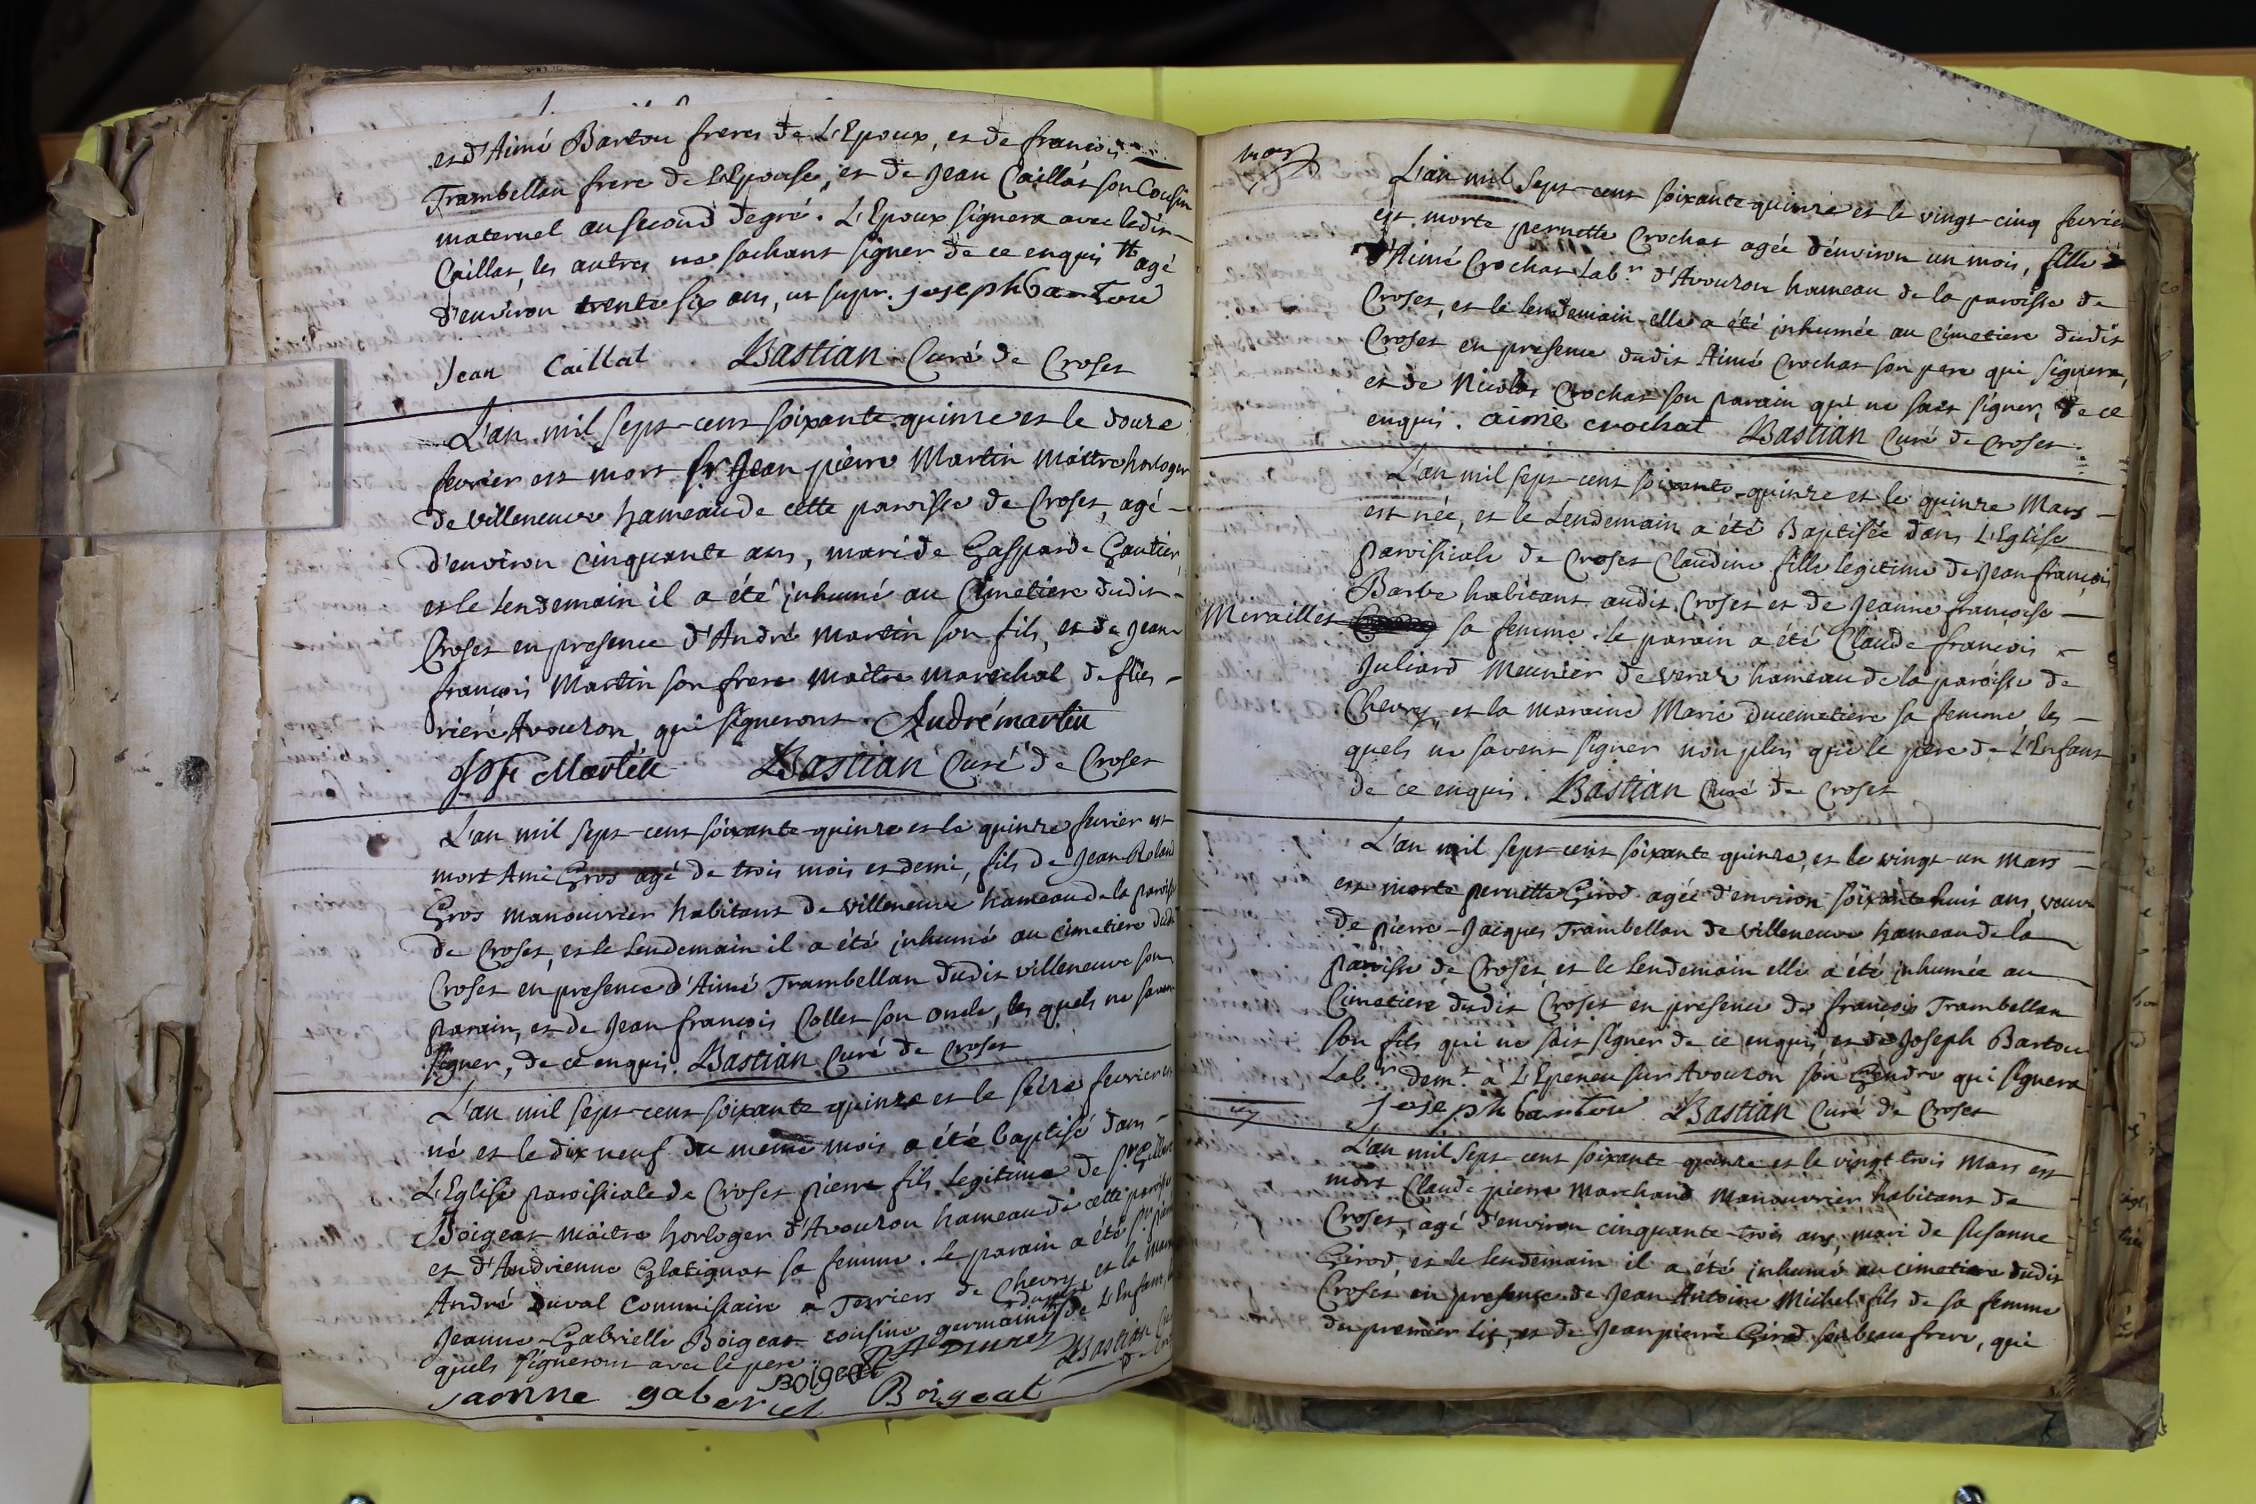 et d'Aimé Barton freres de L'Epoux, et de francois
Trambellan frere de L'Epouse, et de Jean Caillat son Cousin
maternel au second degré. L'Epoux signera avec ledit
Caillat, les autres ne sachant signer de ce enquis # agé
d'environ trente six ans, ut supr. joseph barton
Jean Caillat Bastian Curé de Croset
L'an mil sept-cent soixante-quinze et le douze
fevrier est mort Sr Jean pierre Martin Maître horloger
de villeneuve hameau de cette paroisse de Croset, agé
d'environ cinquante ans, mari de Gasparde Gautier,
et le Lendemain il a été inhumé au Cimetiere dudit
Croset en presence d'André Martin son fils, et de Jean
francois Martin son frere Maître Marechal de flies
riere Avouzon, qui signeront. André martin
Martin Bastian Curé de Croset
L'an mil sept-cent soixante-quinze et le quinze fevrier est
mort Amé Gros agé de trois mois et demi, fils de Jean-Roland
Gros manouvrier habitant de villeneuve hameau de la paroisse
de Croset, et le Lendemain il a été inhumé au cimetiere dudit
Croset en presence d'Aimé Trambellan dudit villeneuve son
parain, et de Jean francois Collet son oncle, les quels ne savent
signer, de ce enquis. Bastian Curé de Croset
L'an mil sept-cent soixante quinze et le seize fevrier est
né et le dix neuf du meme mois a été baptisé dans
L'Eglise paroissiale de Croset pierre fils legitime de Sr
Boigeat maître horloger d'Avouzon hameau de cette paroisse
et d'Andrienne Glatignat sa femme. Le parain a été Sr
André Duval Commissaire a Terriers de Chevry, et la
Jeanne-Gabrielle Boigeat cousine germaine de L'Enfant,
quels signeront avec le pere. Boigeat Duval Bastian
jaonne gaberiel Boigeat
L'an mil sept-cent soixante quinze et le vingt-cinq fevrier
est morte pernette Crochat agée d'environ un mois, fille
d'Aimé Crochat Labr. d'Avouzon hameau de la paroisse de
Croset, et le lendemain elle a été inhumée au cimetiere dudit
Croset en presence dudit Aimé Crochat son pere qui signera,
et de Nicolas Crochat son parain qui ne sait signer, de ce
enquis. aimé crochat Bastian Curé de Croset.
L'an mil sept-cent soixante-quinze et le quinze Mars
est née, et le Lendemain a été Baptisée dans L'Eglise
paroissiale de Croset Claudine fille legitime de Jean françois
Barbe habitant audit Croset et de Jeanne francoise
Mirailles sa femme. le parain a été Claude francois
Juliard Meunier de veraz hameau de la paroisse de
Chevry, et la maraine Marie Ducimetiere sa femme, les
quels ne savent signer non plus que le pere de L'Enfant
de ce enquis. Bastian Curé de Croset
L'an mil sept-cent soixante quinze, et le vingt-un Mars
est morte pernette Girod agée d'environ soixante huit ans, veuve
de pierre-Jacques Trambellan de villeneuve hameau de la
paroisse de Croset, et le Lendemain elle a été inhumée au
Cimetiere dudit Croset en presence de francois Trambellan
son fils qui ne sait signer de ce enquis, et de Joseph Barton
Labr. demt. à L'Epeneu sur Avouzon son Gendre qui signera
joseph barton Bastian Curé de Croset
L'an mil sept-cent soixante-quinze et le vingt trois Mars est
mort Claude pierre Marchand Manouvrier habitant de
Croset, agé d'environ cinquante-trois ans, mari de Susanne
Girod, et le lendemain il a été inhumé au cimetiere dudit
Croset en presence de Jean Antoine Michel fils de sa femme
du premier lit, et de Jean pierre Girod son beau frere, qui